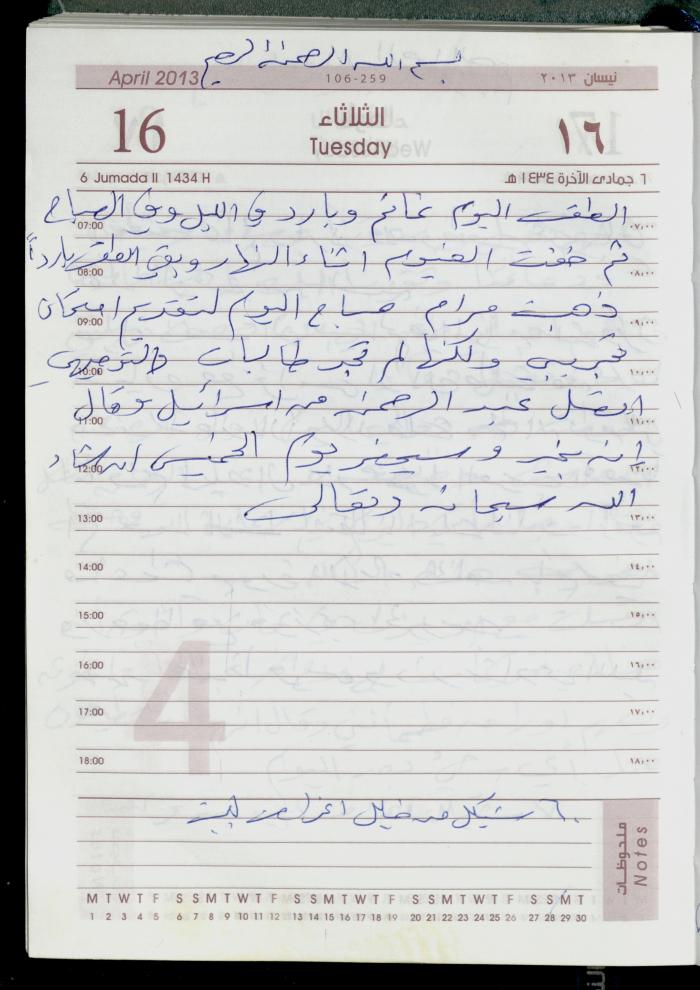 بسم الله الرحمن الرحيم
April 2013 106-259 نيسان ٢٠١٣
16 الثلاثاء ١٦
Tuesday
6 Jumada II 1434 H ٦ جمادى الآخرة ١٤٣٤ هـ
الطقس اليوم غائم وبارد في الليل وفي الصباح
07:00 ٠٧,٠٠
ثم خفت الغيوم اثناء النهار وبقي الطقس بارداً
08:00 ٠٨,٠٠
ذهبت مرام صباح اليوم لتقديم امتحان
09:00 ٠٩,٠٠
تجريبي ولكنها لم تجد طالبات التوجيهي
10:00 ١٠,٠٠
اتصل عبد الرحمن من اسرائيل وقال
11:00 ١١,٠٠
انه بخير وسيحضر يوم الخميس ان شاء
12:00 ١٢,٠٠
الله سبحانه وتعالى
13:00 ١٣,٠٠
14:00 ١٤,٠٠
15:00 ١٥,٠٠
16:00 ١٦,٠٠
17:00 ١٧,٠٠
18:00 ١٨,٠٠
4
٦٠ شيكل من خليل
ملحوظات
Notes
M T W T F S S M T W T F S S M T W T F S S M T W T F S S M T
1 2 3 4 5 6 7 8 9 10 11 12 13 14 15 16 17 18 19 20 21 22 23 24 25 26 27 28 29 30